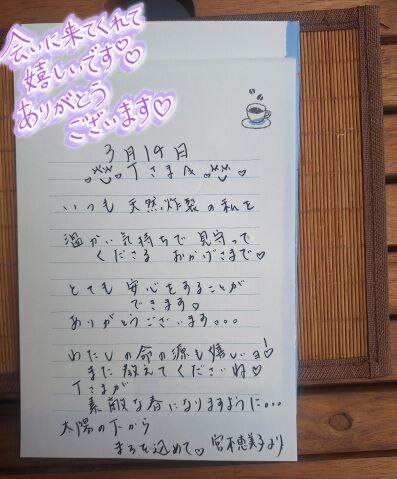 会いに来てくれて
嬉しいです♡♡
ありがとう
ございます♡
3月19日
Tさま
いつも 天然炸裂の私を
温かい気持ちで 見守って
くださる おかげさまで♡
とても 安心をすることが
できます。
ありがとうございます...
わたしの命の源も嬉しいョ!♡
また 教えてくださいね♡
Tさまが
素敵な春になりますように...
太陽の下から
まろを込めて♡ 宮本恵美子より